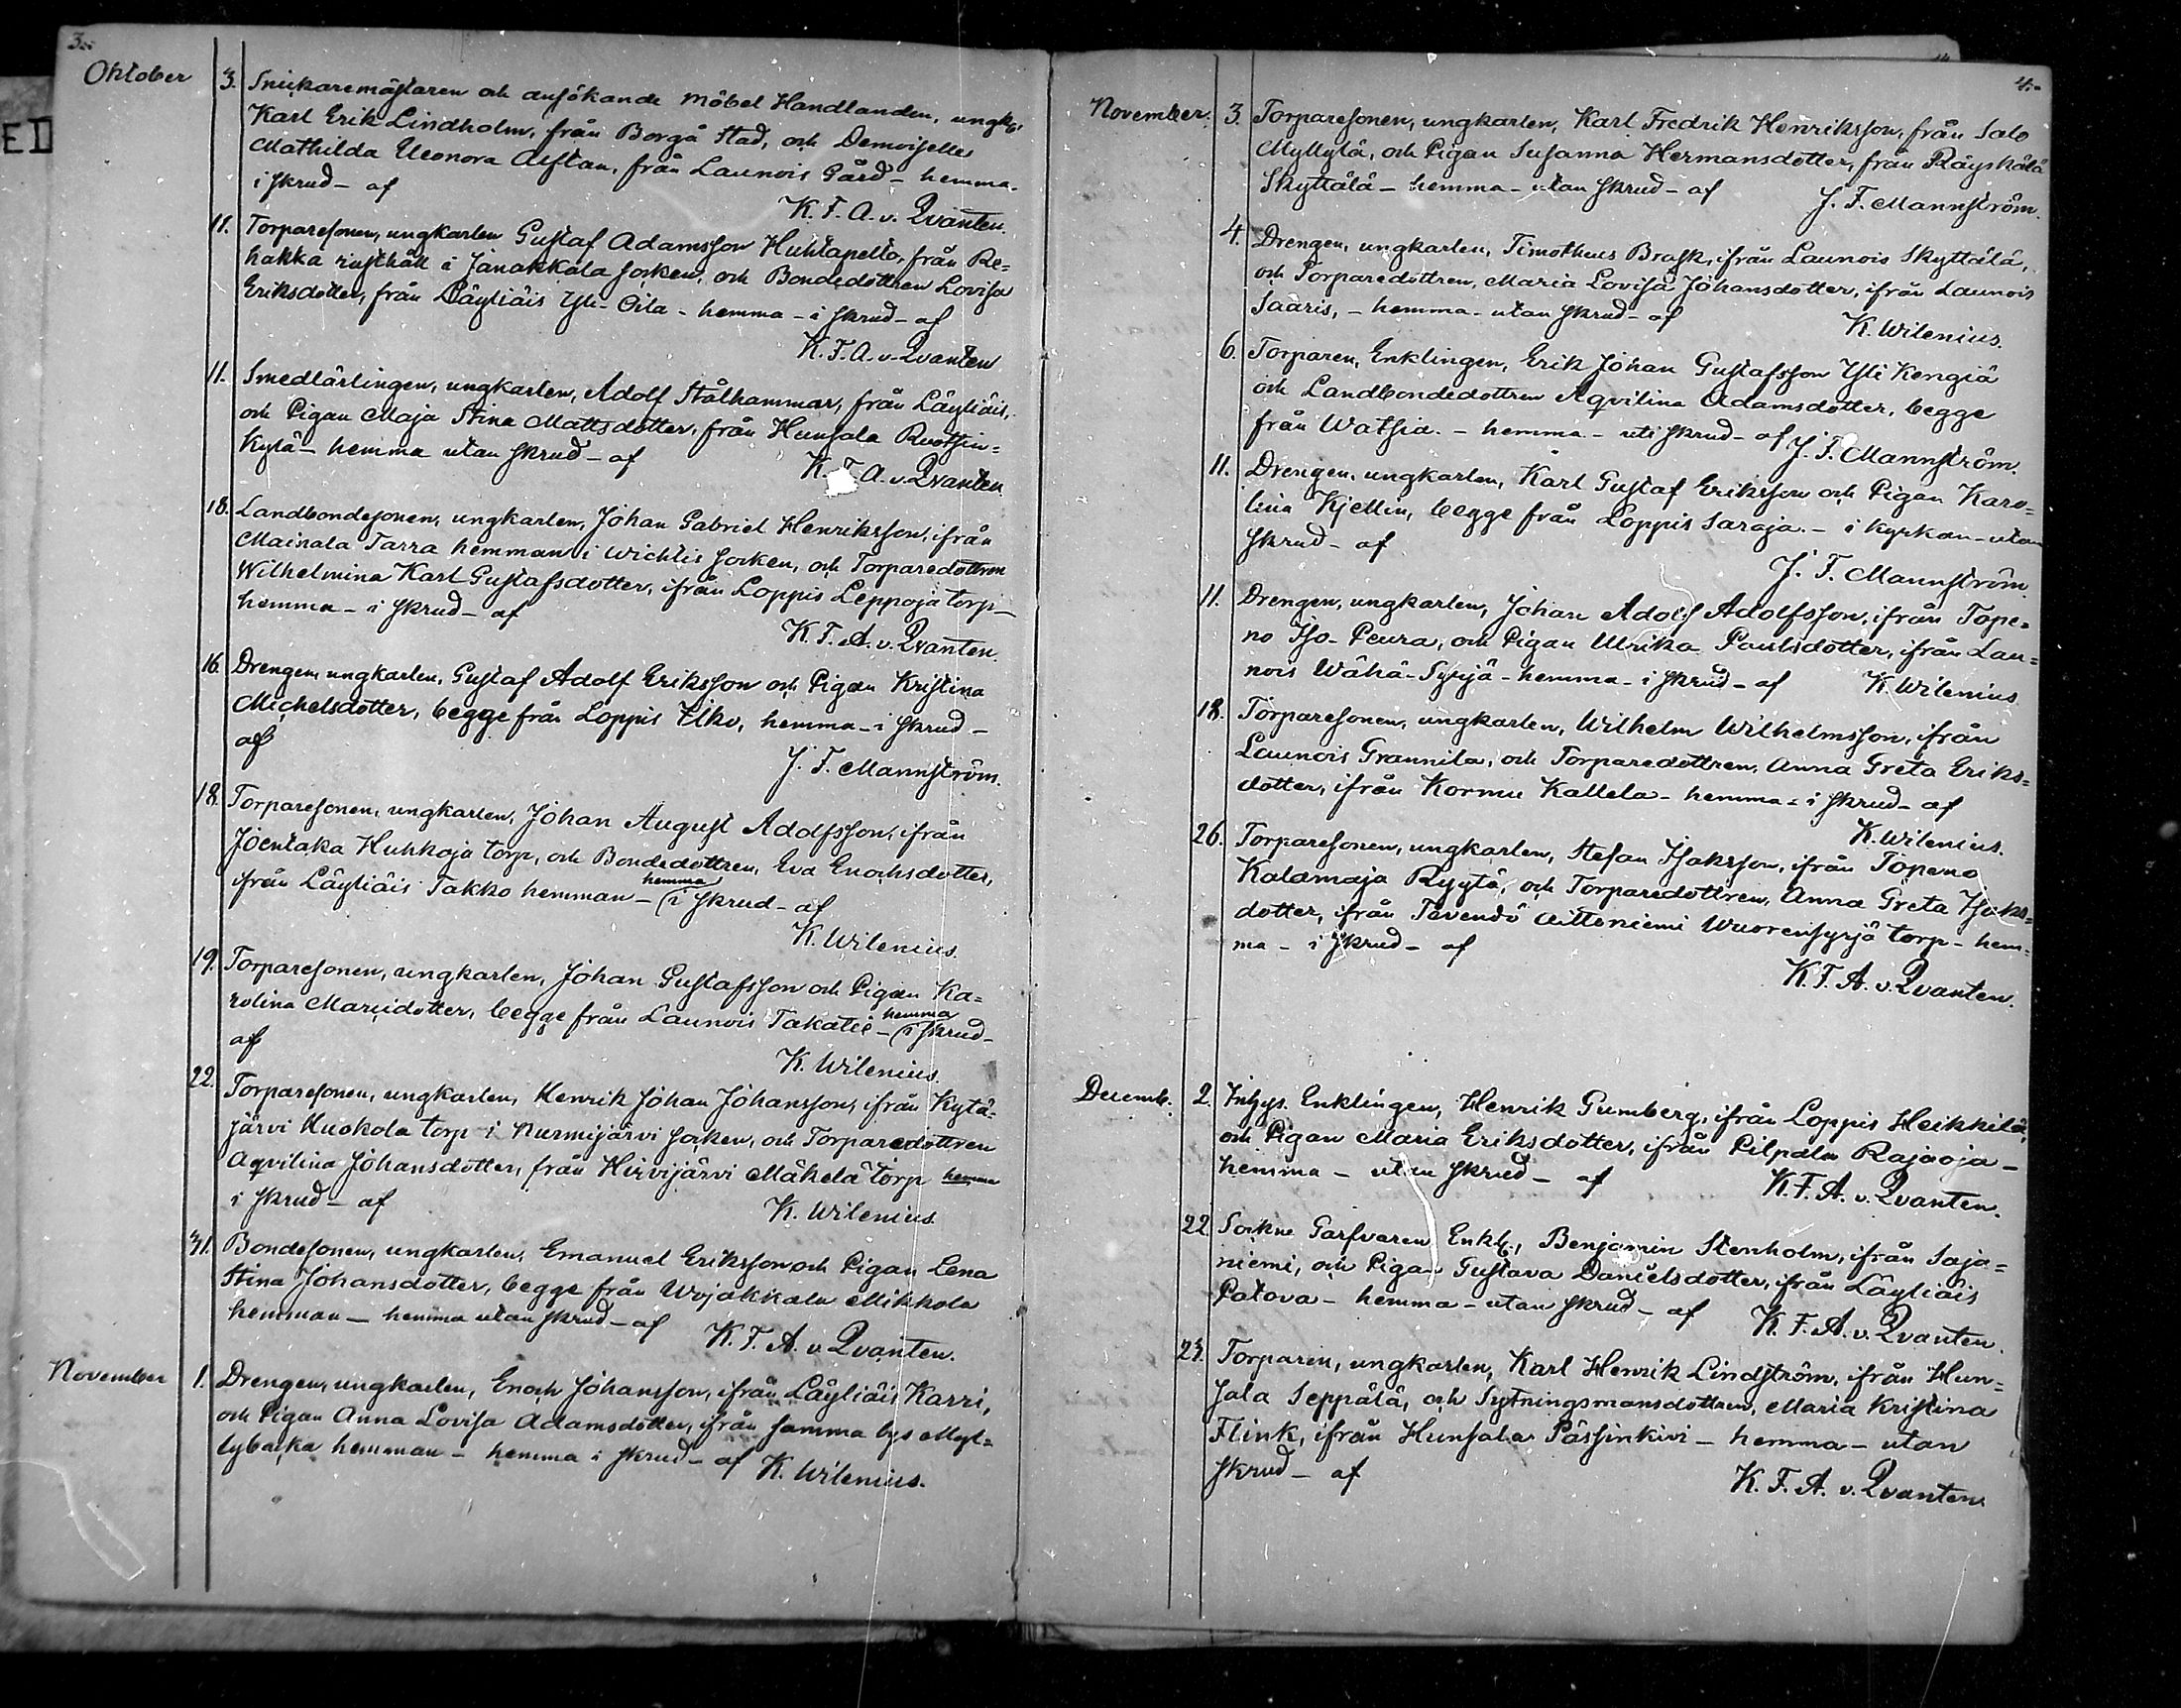 3.
Oktober
3. Snickaremästaren och ansökande Möbel Handlanden, ungk.
Karl Erik Lindholm, från Borgå Stad, och Demoiselle
Mathilda Eleonora från Launois Gård - hemma -
i skrud - af
K. F. A. v. Qvanten.
11. Torparesonen, ungkarlen Gustaf Adamsson Huhtapelto, från Re=
hakka rusthåll i Janakkala socken, och Bondedottren Lovisa
Eriksdotter, från Läyliäis Yli-Oila - hemma - i skrud - af
K. F. A. v. Qvanten
11. Smedlärlingen, ungkarlen, Adolf Stålhammar, från Läyliäis,
och Pigan Maja Stina Mattsdotter, från Hunsala Ruotsin=
kylä - hemma utan skrud - af
K. F. A. v. Qvanten
18. Landbondesonen, ungkarlen, Johan Gabriel Henriksson, ifrån
Mainala Tarra hemman i Wichtis socken, och Torparedottren
Wilhelmina Karl Gustafsdotter, ifrån Loppis Leppoja torp -
hemma - i skrud - af
K. F. A. v. Qvanten.
16. Drengen, ungkarlen, Gustaf Adolf Eriksson och Pigan Kristina
Michelsdotter, begge från Loppis Ilko, hemma - i skrud -
af
J. F. Mannström.
18. Torparesonen, ungkarlen, Johan August Adolfsson, ifrån
Joentaka Huhkoja torp, och Bondedottren, Eva Enochsdotter,
hemma
ifrån Läyliäis Takko hemman - (i skrud - af
K. Wilenius.
19. Torparesonen, ungkarlen, Johan Gustafsson och Pigan Ka=
rolina Marcidotter, begge från Launois Takatie - (i skrud -
hemma
af
K. Wilenius.
22. Torparesonen, ungkarlen, Henrik Johan Johansson, ifrån Kytä=
järvi Kuokola torp i Nurmijärvi socken, och Torparedottren
Aqvilina Johansdotter, från Hirvijärvi Mäkelä torp hemma
i skrud - af
K. Wilenius.
31. Bondesonen, ungkarlen, Emanuel Eriksson och Pigan Lena
Stina Johansdotter, begge från Wojakkala Mikkola
hemman - hemma utan skrud - af
K. F. A. v. Qvanten.
November
1. Drengen, ungkarlen, Enoch Johansson, ifrån Läyliäis Karri,
och Pigan Anna Lovisa Adamsdotter, ifrån samma bys Myl=
lybacka hemman - hemma i skrud - af K. Wilenius.
4.
November.
3. Torparesonen, ungkarlen, Karl Fredrik Henriksson, från Salo
Myllylä, och Pigan Susanna Hermansdotter, från Räyskälä
Skyttälä - hemma - utan skrud - af
J. F. Mannström.
4. Drengen, ungkarlen, Timotheus Brask, ifrån Launois Skyttälä,
och Torparedottren, Maria Lovisa Johansdotter, ifrån Launois
Saaris, - hemma - utan skrud - af
K. Wilenius.
6. Torparen, Enklingen, Erik Johan Gustafsson Yli Kengiä
och Landbondedottren Aqvilina Adamsdotter, begge
från Watsia. - hemma - uti skrud - af J. F. Mannström.
11. Drengen, ungkarlen, Karl Gustaf Eriksson och Pigan Karo=
lina Kjellin, begge från Loppis Saraja. - i kyrkan - utan
skrud - af
J. F. Mannström
11. Drengen, ungkarlen, Johan Adolf Adolfsson, ifrån Tope=
no Iso-Peura, och Pigan Ulrika Paulsdotter, ifrån Lau=
nois Wähä-Syrjä - hemma - i skrud - af K. Wilenius
18. Torparesonen, ungkarlen, Wilhelm Wilhelmsson, ifrån
Launois Grannila, och Torparedottren, Anna Greta Eriks=
dotter, ifrån Kormu Kallela - hemma - i skrud - af
K. Wilenius.
26. Torparesonen, ungkarlen, Stefan Isaksson, ifrån Topeno
Kalamaja Ryytä, och Torparedottren, Anna Greta Isaks=
dotter, ifrån Tevendö Aittoniemi Wuorensyrjä torp - hem=
ma - i skrud - af
K. F. A. v. Qvanten.
Decemb.
2. Inhys. Enklingen, Henrik Gumberg, ifrån Loppis Heikkilä,
och Pigan Maria Eriksdotter, ifrån Pilpala Rajaoja -
hemma - utan skrud - af
K. F. A. v. Qvanten.
22. Sockne Garfvaren Enkl., Benjamin Stenholm, ifrån Saja=
niemi, och Pigan Gustava Danielsdotter, ifrån Läyliäis
Patova - hemma - utan skrud - af
K. F. A. v. Qvanten.
23. Torparen, ungkarlen, Karl Henrik Lindström, ifrån Hun=
sala Seppälä, och Sytningsmansdottren, Maria Kristina
Flink, ifrån Hunsala Pässinkivi - hemma - utan
skrud - af
K. F. A. v. Qvanten.